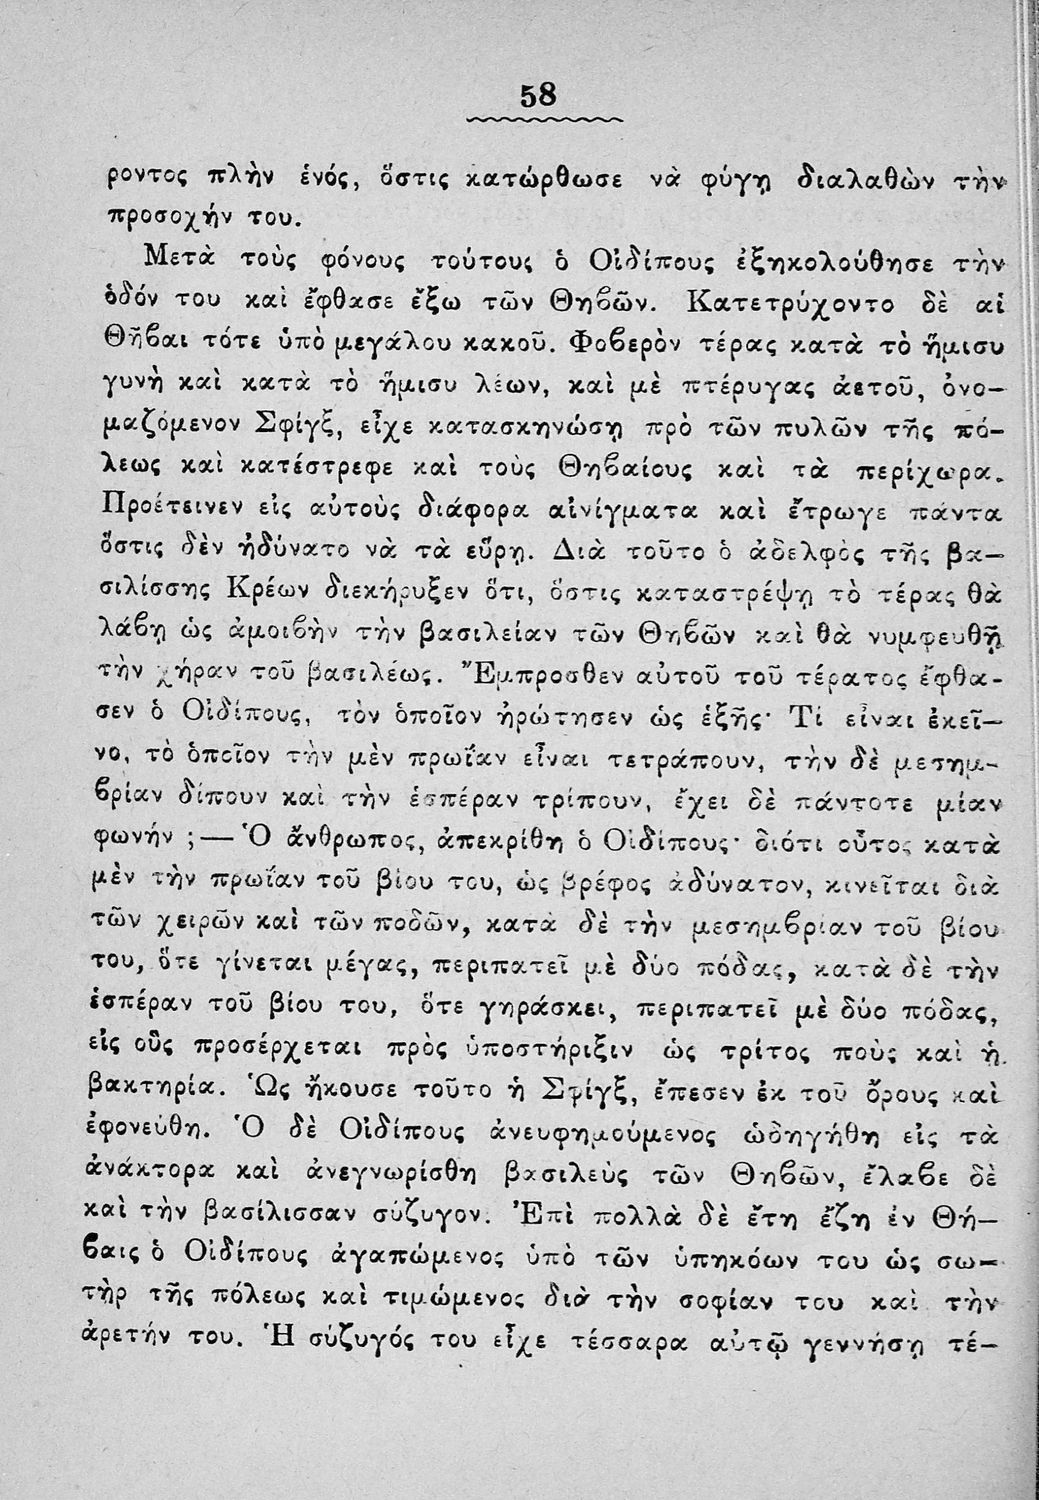 58
ροντος πλὴν ἑνός, ὅστις κατώρθωσε νὰ φύγῃ διαλαθὼν τὴν
προσοχήν του.
Μετὰ τοὺς φόνους τούτους ὁ Οἰδίπους ἐξηκολούθησε τὴν
ὁδόν του καὶ ἔφθασε ἔξω τῶν Θηβῶν. Κατετρύχοντο δὲ αἱ
Θῆβαι τότε ὑπὸ μεγάλου κακοῦ. Φοβερὸν τέρας κατὰ τὸ ἥμισυ
γυνὴ καὶ κατὰ τὸ ἥμισυ λέων, καὶ μὲ πτέρυγας ἀετοῦ, ὀνο-
μαζόμενον Σφίγξ, εἶχε κατασκηνώσῃ πρὸ τῶν πυλῶν τῆς πό-
λεως καὶ κατέστρεφε καὶ τοὺς Θηβαίους καὶ τὰ περίχωρα.
Προέτεινεν εἰς αὐτοὺς διάφορα αἰνίγματα καὶ ἔτρωγε πάντα
ὅστις δὲν ἠδύνατο νὰ τὰ εὕρῃ. Διὰ τοῦτο ὁ ἀδελφὸς τῆς βα-
σιλίσσης Κρέων διεκήρυξεν ὅτι, ὅστις καταστρέψῃ τὸ τέρας θὰ
λάβῃ ὡς ἀμοιβὴν τὴν βασιλείαν τῶν Θηβῶν καὶ θὰ νυμφευθῇ
τὴν χήραν τοῦ βασιλέως. Ἔμπροσθεν αὐτοῦ τοῦ τέρατος ἔφθα-
σεν ὁ Οἰδίπους, τὸν ὁποῖον ἠρώτησεν ὡς ἑξῆς· Τί εἶναι ἐκεῖ-
νο, τὸ ὁποῖον τὴν μὲν πρωΐαν εἶναι τετράπουν, τὴν δὲ μεσημ-
βρίαν δίπουν καὶ τὴν ἑσπέραν τρίπουν, ἔχει δὲ πάντοτε μίαν
φωνήν ;— Ὁ ἄνθρωπος, ἀπεκρίθη ὁ Οἰδίπους· διότι οὗτος κατὰ
μὲν τὴν πρωΐαν τοῦ βίου του, ὡς βρέφος ἀδύνατον, κινεῖται διὰ
τῶν χειρῶν καὶ τῶν ποδῶν, κατὰ δὲ τὴν μεσημβρίαν τοῦ βίου
του, ὅτε γίνεται μέγας, περιπατεῖ μὲ δύο πόδας, κατὰ δὲ τὴν
ἑσπέραν τοῦ βίου του, ὅτε γηράσκει, περιπατεῖ μὲ δύο πόδας,
εἰς οὓς προσέρχεται πρὸς ὑποστήριξιν ὡς τρίτος ποὺς καὶ ἡ
βακτηρία. Ὡς ἤκουσε τοῦτο ἡ Σφίγξ, ἔπεσεν ἐκ τοῦ ὄρους καὶ
ἐφονεύθη. Ὁ δὲ Οἰδίπους ἀνευφημούμενος ὡδηγήθη εἰς τὰ
ἀνάκτορα καὶ ἀνεγνωρίσθη βασιλεὺς τῶν Θηβῶν, ἔλαβε δὲ
καὶ τὴν βασίλισσαν σύζυγον. Ἐπὶ πολλὰ δὲ ἔτη ἔζη ἐν Θή-
βαις ὁ Οἰδίπους ἀγαπώμενος ὑπὸ τῶν ὑπηκόων του ὡς σω-
τὴρ τῆς πόλεως καὶ τιμώμενος διὰ τὴν σοφίαν του καὶ τὴν
ἀρετήν του. Ἡ σύζυγός του εἶχε τέσσαρα αὐτῷ γεννήσῃ τέ-